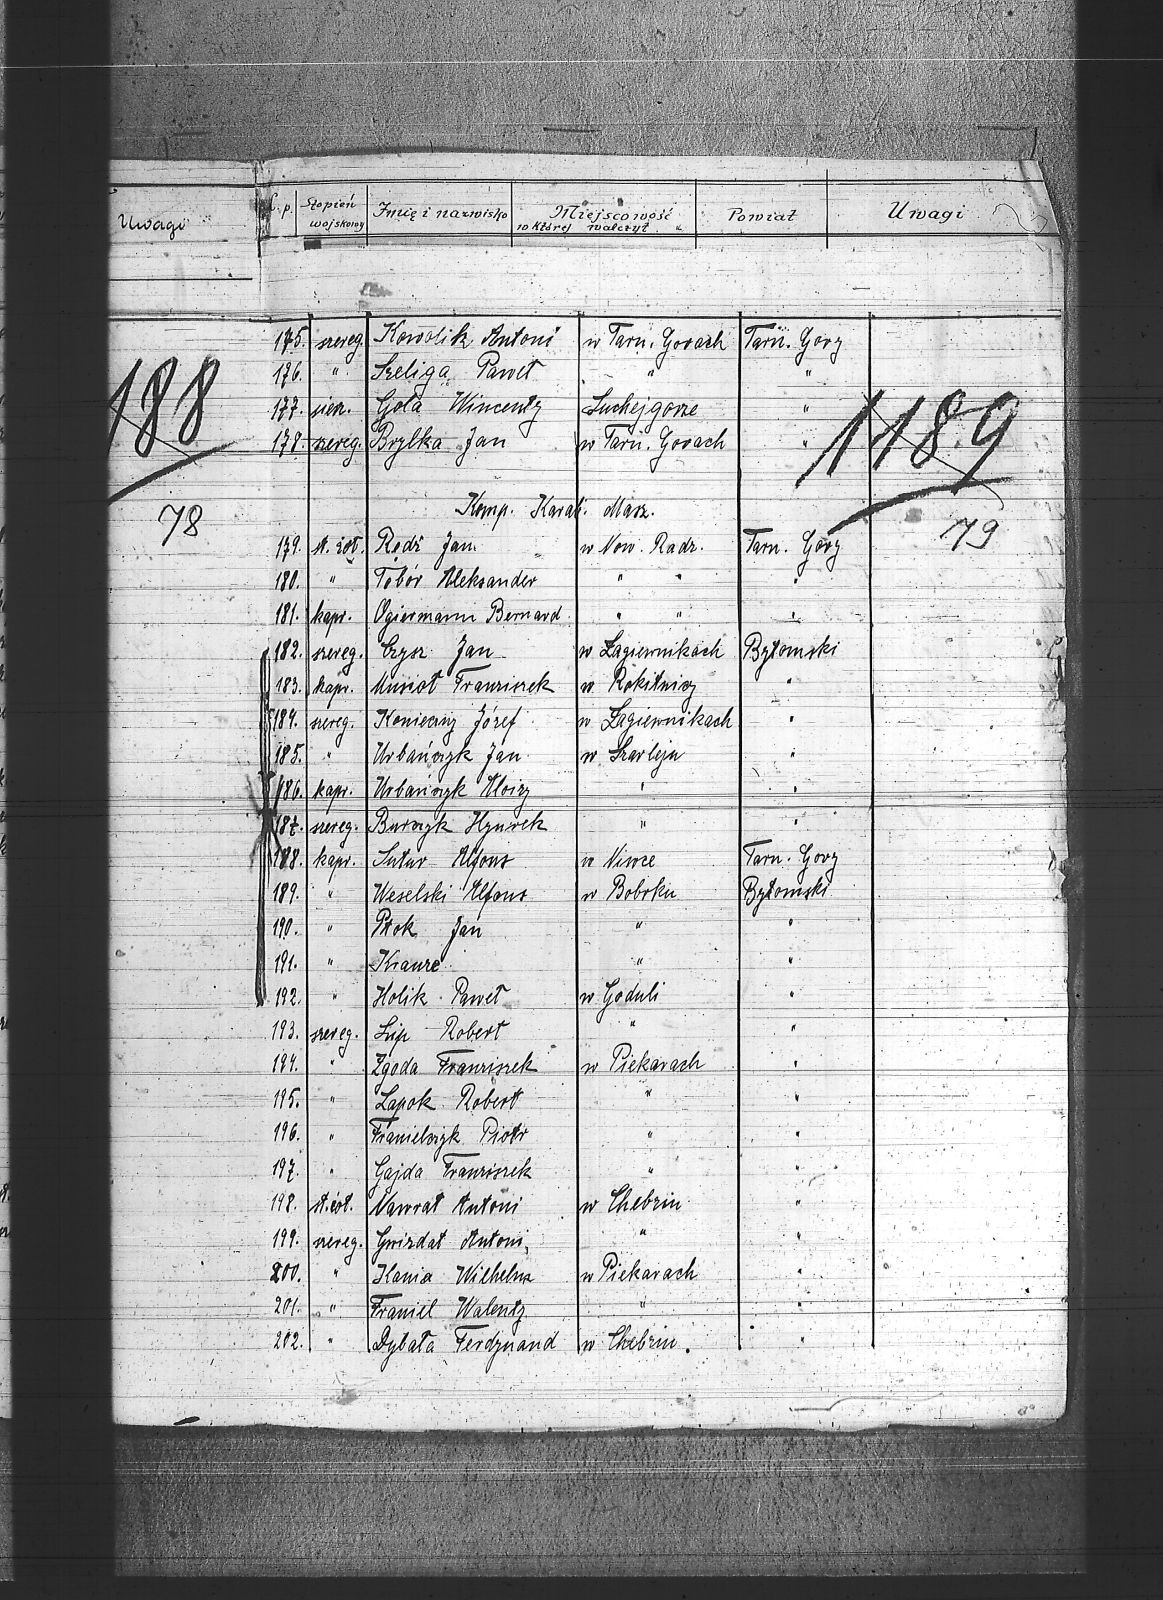 Uwagi
L.p. Stopień wojskowy Imię i nazwisko Miejscowość w której walczył Powiat Uwagi
175. szereg. Kowolik Antoni w Tarn. Gorach Tarn. Gory
176. " Szeliga Paweł " "
188
177. sierz. Gola Wincenty Suchejgorze "
1189
178. szereg. Brylka Jan w Tarn. Gorach "
Komp. Karab. Masz.
78
79
179. st. żoł. Redź Jan w Now. Radz. Tarn. Gory
180. " Tobór Aleksander " " "
181. kapr. Ogiermann Bernard " " "
182. szereg. Czysz Jan w Łagiewnikach Bytomski
183. kapr. Musioł Franziszek w Rokitnicy "
184. szereg. Konieczny Józef w Łagiewnikach "
185. " Urbańczyk Jan w Szarleju "
186. kapr. Urbańczyk Aloizy " "
187. szereg. Burczyk Hynrek " "
188. kapr. Alfons w Tarn. Gory
189. " Weselski Alfons w Bobrku Bytomski
190. " Ptok Jan " "
191. " Krauze " "
192. " Holik Paweł w Goduli "
193. szereg. Lip Robert " "
194. " Zgoda Franziszek w Piekarach "
195. " Lapok Robert " "
196. " Franielczyk Piotr " "
197. " Gajda Franziszek " "
198. st. żoł. Nawrat Antoni w Chebziu "
199. szereg. Gwizdał Antoni " "
200. " Kania Wilhelm w Piekarach "
201. " Franiel Walenty " "
202. " Dybała Ferdynand w Chebziu. "